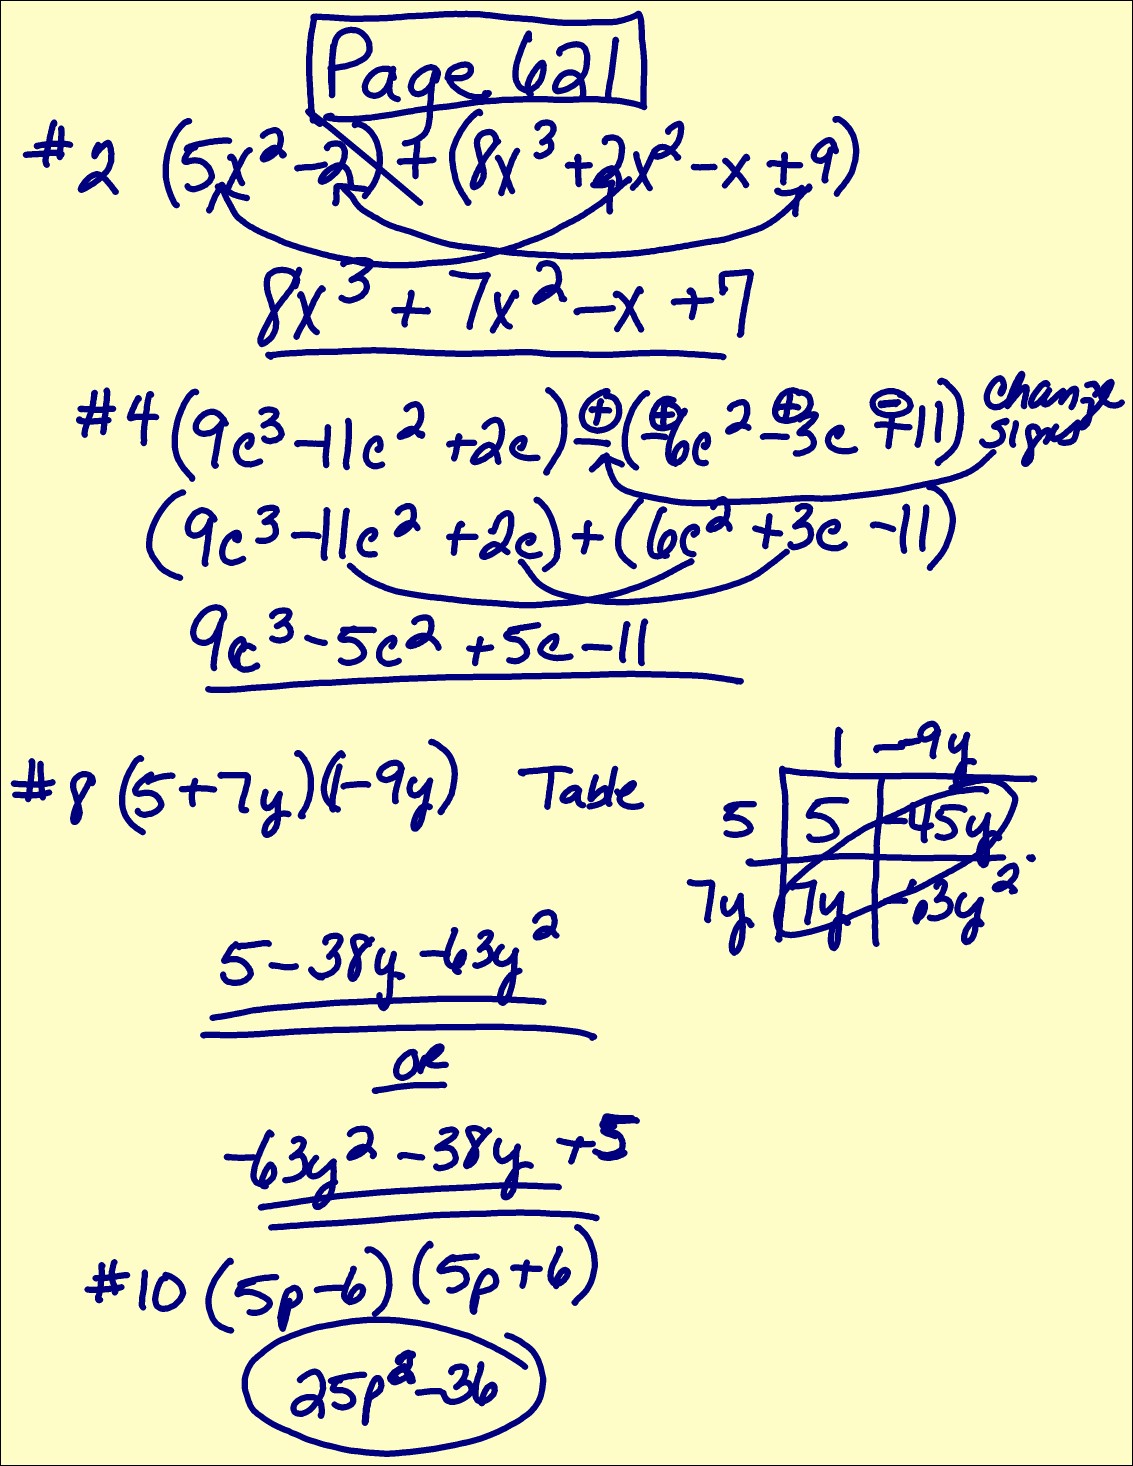 Page 621
#2 (5x² - 2) + (8x³ + 2x² - x + 9)
8x³ + 7x² - x + 7
#4 (9c³ - 11c² + 2c) - (-6c² - 3c + 11) change signs
+ + + -
(9c³ - 11c² + 2c) + (6c² + 3c - 11)
9c³ - 5c² + 5c - 11
#8 (5 + 7y)(1 - 9y) Table
1 -9y
5 5 -45y
7y 7y -63y²
5 - 38y - 63y²
or
-63y² - 38y + 5
#10 (5p - 6)(5p + 6)
25p² - 36